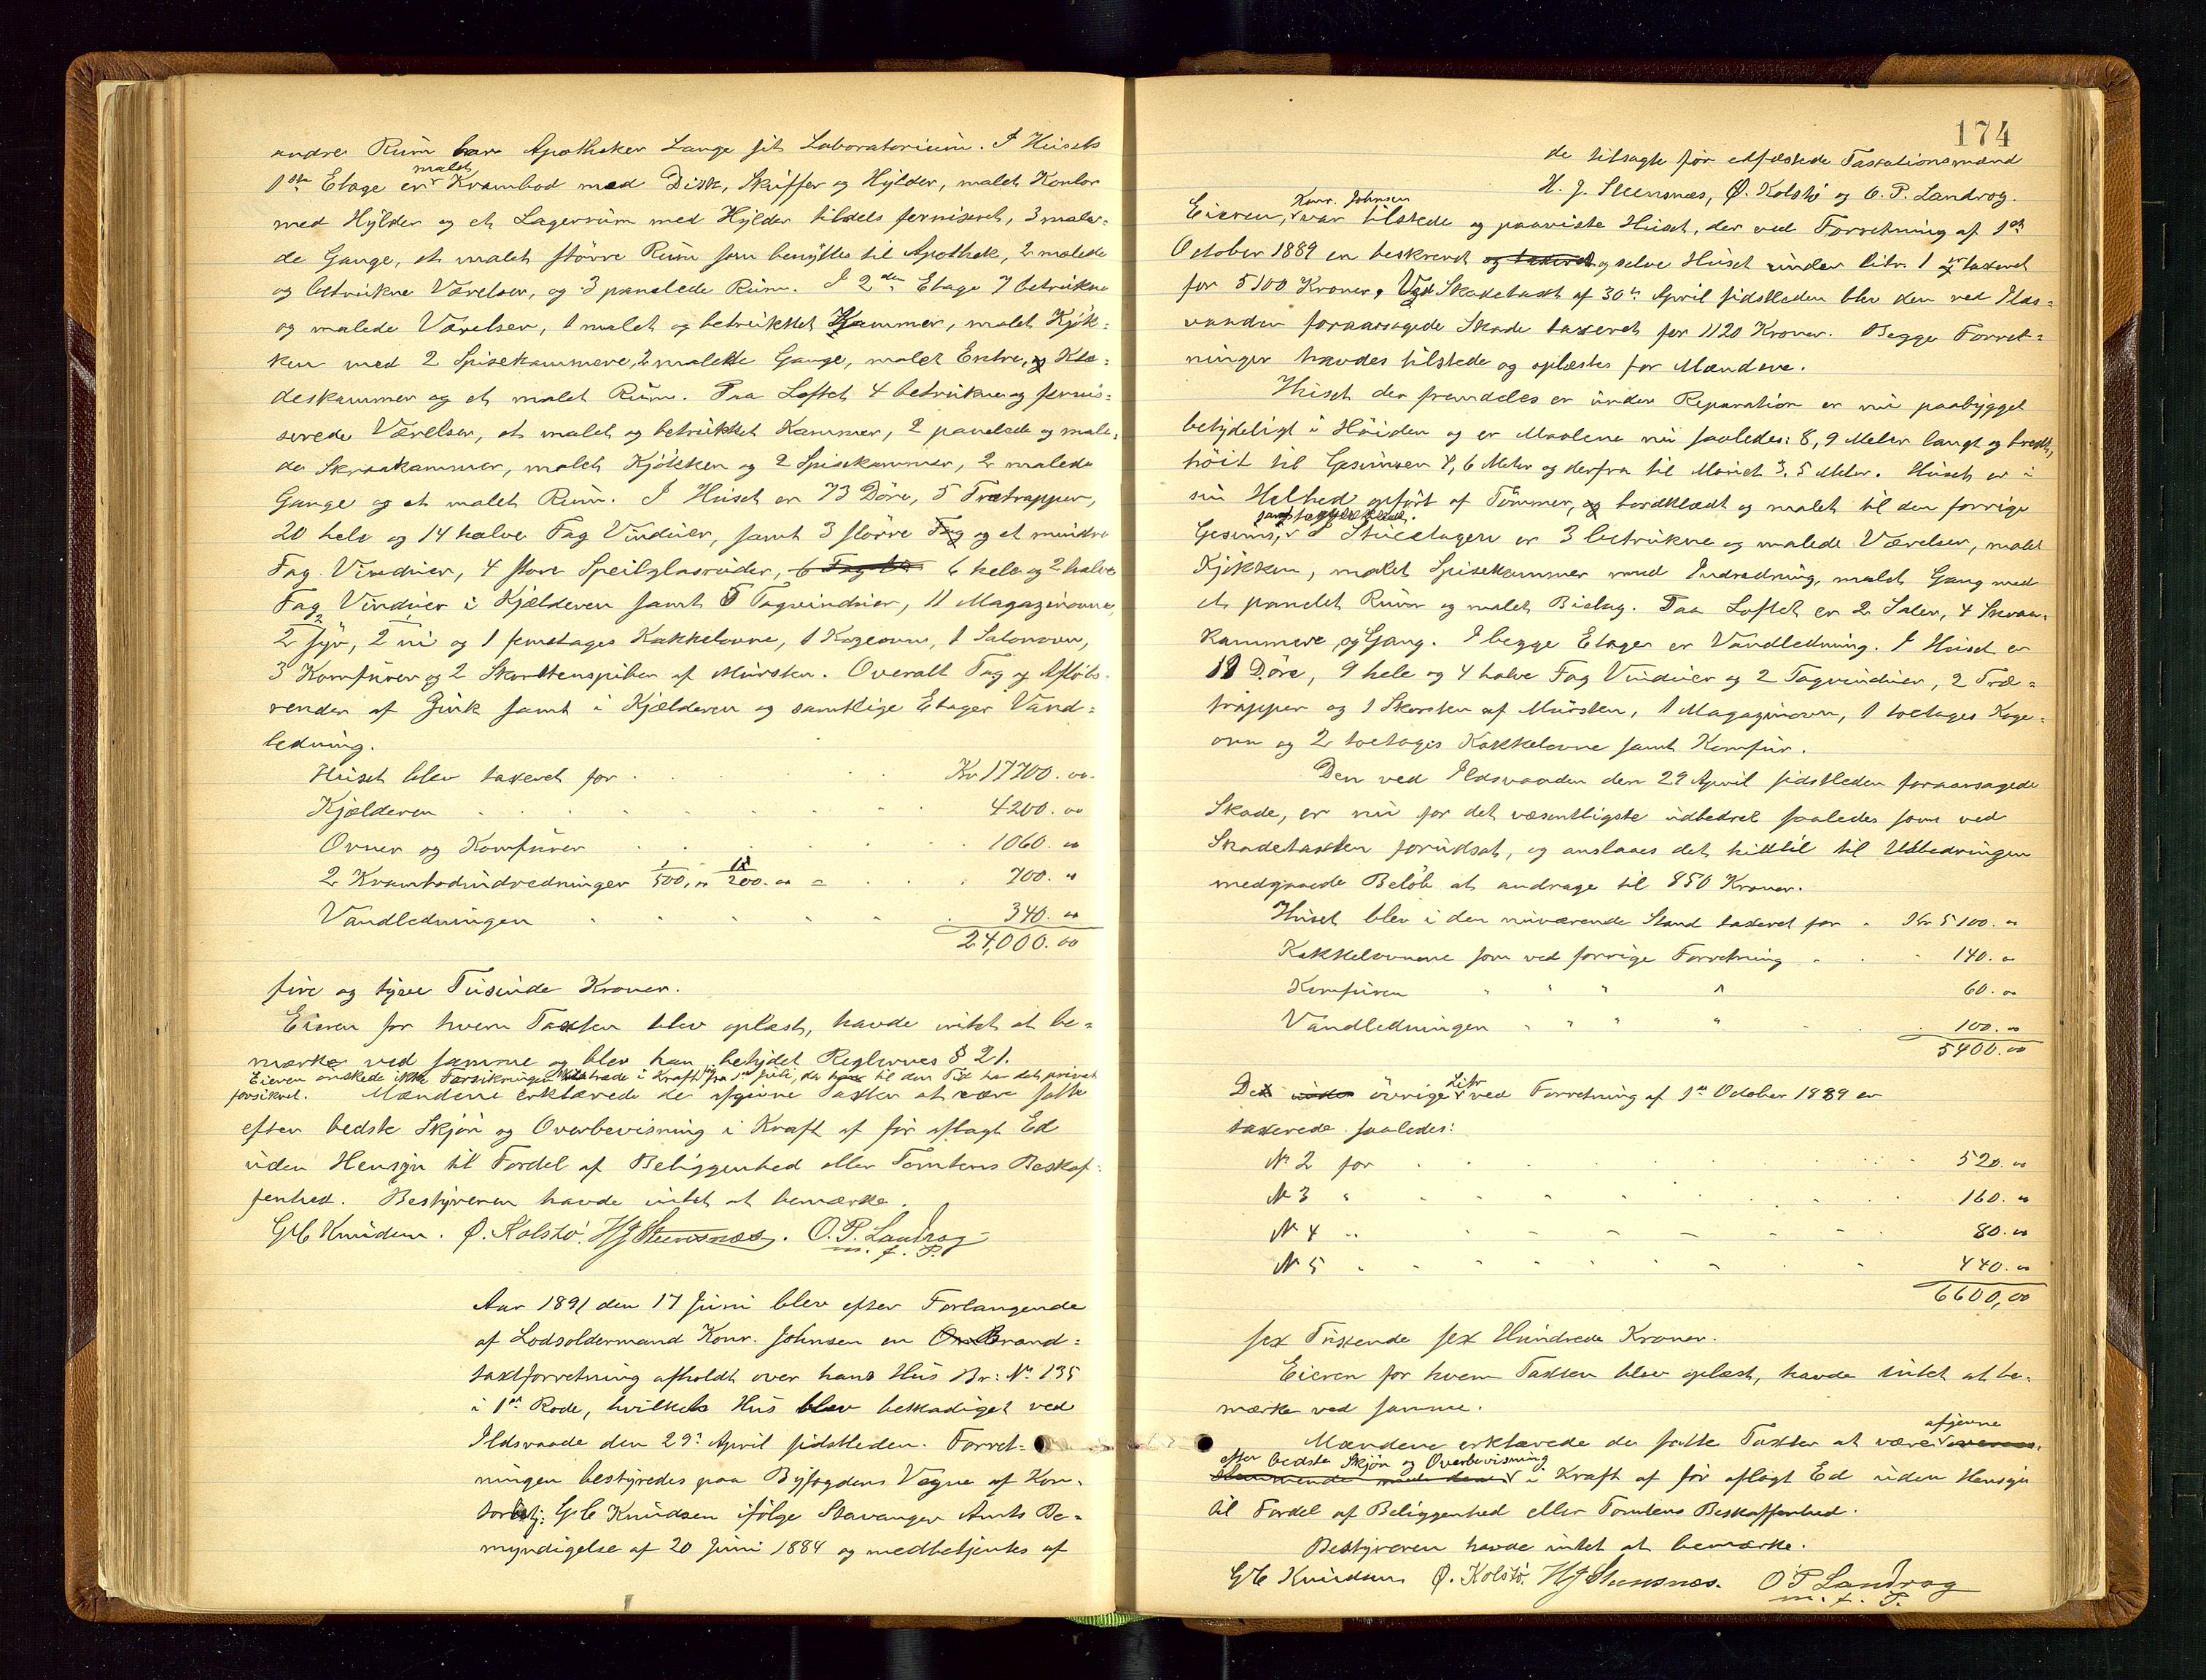 andre Rum har Apotheker Lange sit Laboratorium. I Husets
1ste Etage er malet Krambod med Disk, Skuffer og Hylder, malet Kontor
med Hylder og et Lagerrum med Hylder tildels ferniseret, 3 male-
de Gange, et malet større Rum som benyttes til Apothek, 2 malede
og betrukne Værelser, og 3 panelede Rum. I 2den Etage 7 betrukne
og malede Værelser, 1 malet og betrukket Kammer, malet Kjøk-
ken med 2 Spisekammere, 2 malede Gange, malet Entre, Klæ-
deskammer og et malet Rum. Paa Loftet 4 betrukne og fernis-
serede Værelser, et malet og betrukket Kammer, 2 panelede og male-
de Skraakammer, malet Kjøkken og 2 Spisekammer, 2 malede
Gange og et malet Rum. I Huset er 73 Döre, 5 Trætrapper,
20 hele og 14 halve Fag Vinduer, samt 3 större Fag og et mindre
Fag Vinduer, 4 store Speilglasruder, 6 hele og 2 halve
Fag Vinduer i Kjælderen samt 5 Tagvinduer, 11 Magazinovne,
2 syv, 2 ni og 1 femetages Kakkelovne, 1 Kogeovn, 1 Salonovn,
3 Komfurer og 2 Skorstenspiber af Mursten. Overalt Tag og Afløbs-
render af Zink samt i Kjælderen og samtlige Etager Vand-
ledning.
Huset blev taxeret for Kr 17700.00
Kjælderen 4200.00
Ovner og Komfurer 1060.00
2 Krambodindredninger 1/500,00 1/200.00 = 700.00
Vandledningen 340.00
24,000.00
fire og tyve Tusinde Kroner.
Eieren for hvem Taxten blev oplæst, havde intet at be-
mærke ved samme og blev han betydet Reglernes § 21.
Eieren önskede ikke Forsikringen at træde i Kraft för fra 1ste Juli, da til den Tid har det privat
forsikret. Mændene erklærede de afgivne Taxter at være satte
efter bedste Skjön og Overbevisning i Kraft af för aflagt Ed
uden Hensyn til Fordel af Beliggenhed eller Tomtens Beskaf-
fenhed. Bestyreren havde intet at bemærke.
G C Knudsen. Ø. Kolstö. H J Steensnæs. O. P. Landrog
m. f. P.
Aar 1891 den 17 Juni blev efter Forlangende
af Lodsoldermand Konr. Johnsen en Brand-
taxtforretning afholdt over hans Hus Br: No 135
i 1ste Rode, hvilket Hus blev beskadiget ved
Ildsvaade den 29de April sidstleden. Forret-
ningen bestyredes paa Byfogdens Vegne af Kon-
torbetj: G C Knudsen ifölge Stavanger Amts Be-
myndigelse af 20 Juni 1884 og medbetjentes af
174
de tilsagte för edfæstede Taxationsmænd
H. J. Steensnæs, Ø. Kolstö og O. P. Landrog.
Eieren, Konr. Johnsen var tilstede og paaviste Huset, der ved Forretning af 1ste
October 1889 er beskrevet og taxeret og selve Huset under litr. 1 er taxeret
for 5100 Kroner. Ved Skadetaxt af 30te April sidstleden blev den ved Ilds-
vaaden foraarsagede Skade taxeret for 1120 Kroner. Begge Forret-
ninger havdes tilstede og oplæstes for Mændene.
Huset der fremdeles er under Reparation er nu paabygget
betydeligt i Höiden og er Maalene nu saaledes: 8,9 Meter langt og bredt,
höit til Gesimsen 4,6 Meter og derfra til Mönet 3.5 Meter. Huset er i
sin Helhed opfört af Tömmer, bordklædt og malet til den forrige
Gesims, samt I Stueetagen er 3 betrukne og malede Værelser, malet
Kjökken, malet Spisekammer med Indredning, malet Gang med
et panelet Rum og malet Bislag. Paa Loftet er 2 Saler, 4 Skraa-
kammere og Gang. I begge Etager er Vandledning. I Huset er
18 Döre, 9 hele og 4 halve Fag Vinduer og 2 Tagvinduer, 2 Træ-
trapper og 1 Skorsten af Mursten, 1 Magazinovn, 1 toetages Koge-
ovn og 2 toetages Kakkelovne samt Komfur.
Den ved Ildsvaaden den 29 April sidstleden foraarsagede
Skade, er nu for det væsentligste udbedret saaledes som ved
Skadetaxten forudsat, og anslaaes det hidtil til Udbedringen
medgaaede Belöb at andrage til 850 Kroner.
Huset blev i den nuværende Stand taxeret for Kr 5100.00
Kakkelovnene som ved forrige Forretning 140.00
Komfuren " " " " 60.00
Vandledningen " " " " 100.00
5400.00
De övrige Litr ved Forretning af 1ste October 1889 er
taxerede saaledes:
No 2 for 520.00
No 3 " 160.00
No 4 " 80.00
No 5 " 440.00
6600,00
sex Tusende sex Hundrede Kroner.
Eieren for hvem Taxten blev oplæst, havde intet at be-
mærke ved samme.
Mændene erklærede de satte Taxter at være afgivne
efter bedste Skjön og Overbevisning i Kraft af för aflagt Ed uden Hensyn
til Fordel af Beliggenhed eller Tomtens Beskaffenhed.
Bestyreren havde intet at bemærke.
G C Knudsen Ø. Kolstö. H J Steensnæs. O P Landrog
m. f. P.